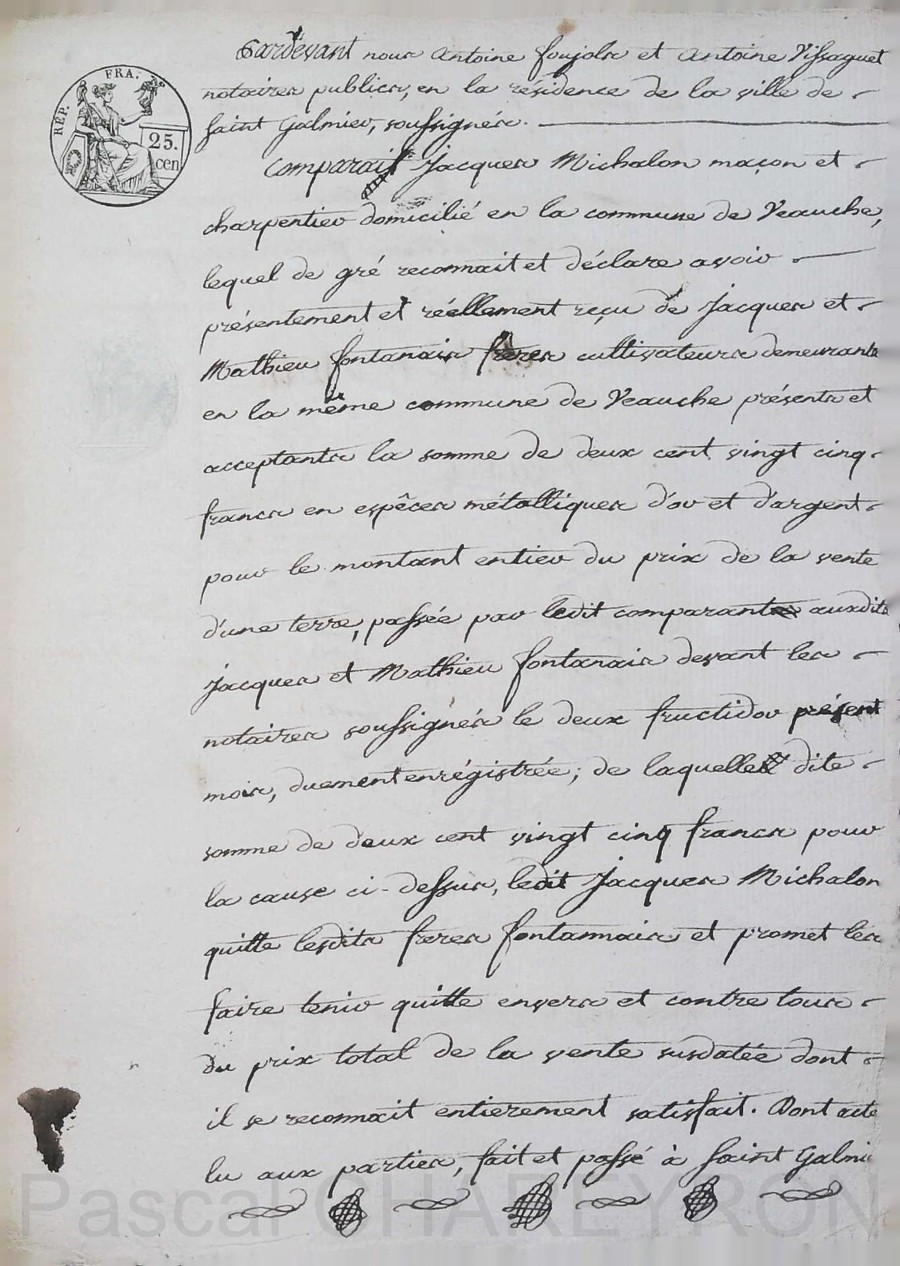 RÉP. FRA.
25.
cen
Pardevant nous Antoine foujols et Antoine Vissaguet
notaires publics, en la résidence de la ville de
saint Galmier, soussignés.
Comparait Jacques Michalon maçon et
charpentier domicilié en la commune de Veauche,
lequel de gré reconnait et déclare avoir
présentement et réellement reçu de Jacques et
Mathieu fontanais freres cultivateurs demeurants
en la même commune de Veauche présents et
acceptants la somme de deux cent vingt cinq
francs en espêces métalliques d'or et d'argent
pour le montant entier du prix de la vente
d'une terre, passée par ledit comparant auxdits
Jacques et Mathieu fontanais devant les
notaires soussignés le deux fructidor présent
mois, duement enrégistrée; de laquelle dite
somme de deux cent vingt cinq francs pour
la cause ci-dessus, ledit Jacques Michalon
quitte lesdits freres fontannais et promet les
faire tenir quitte envers et contre tous
du prix total de la vente susdatée dont
il se reconnait entierement satisfait. Dont acte
lu aux parties, fait et passé à saint Galmi
Pascal CHAREYRON